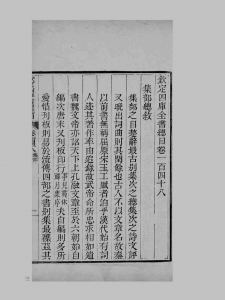 欽定四庫全書總目卷一百四十八
集部總敘
集部之目楚辭最古別集次之總集次之詩文評
又晚出詞曲則其閏餘也古人不以文章名故秦
以前書無稱屈原宋玉工賦者洎乎漢代始有詞
人迹其著作率由追錄故武帝命所忠求相如遺
書魏文帝亦詔天下上孔融文章至於六朝始自
編次唐末又刊板印行夫自編則多所
愛惜刊板則易於流傳四部之書別集最雜茲其